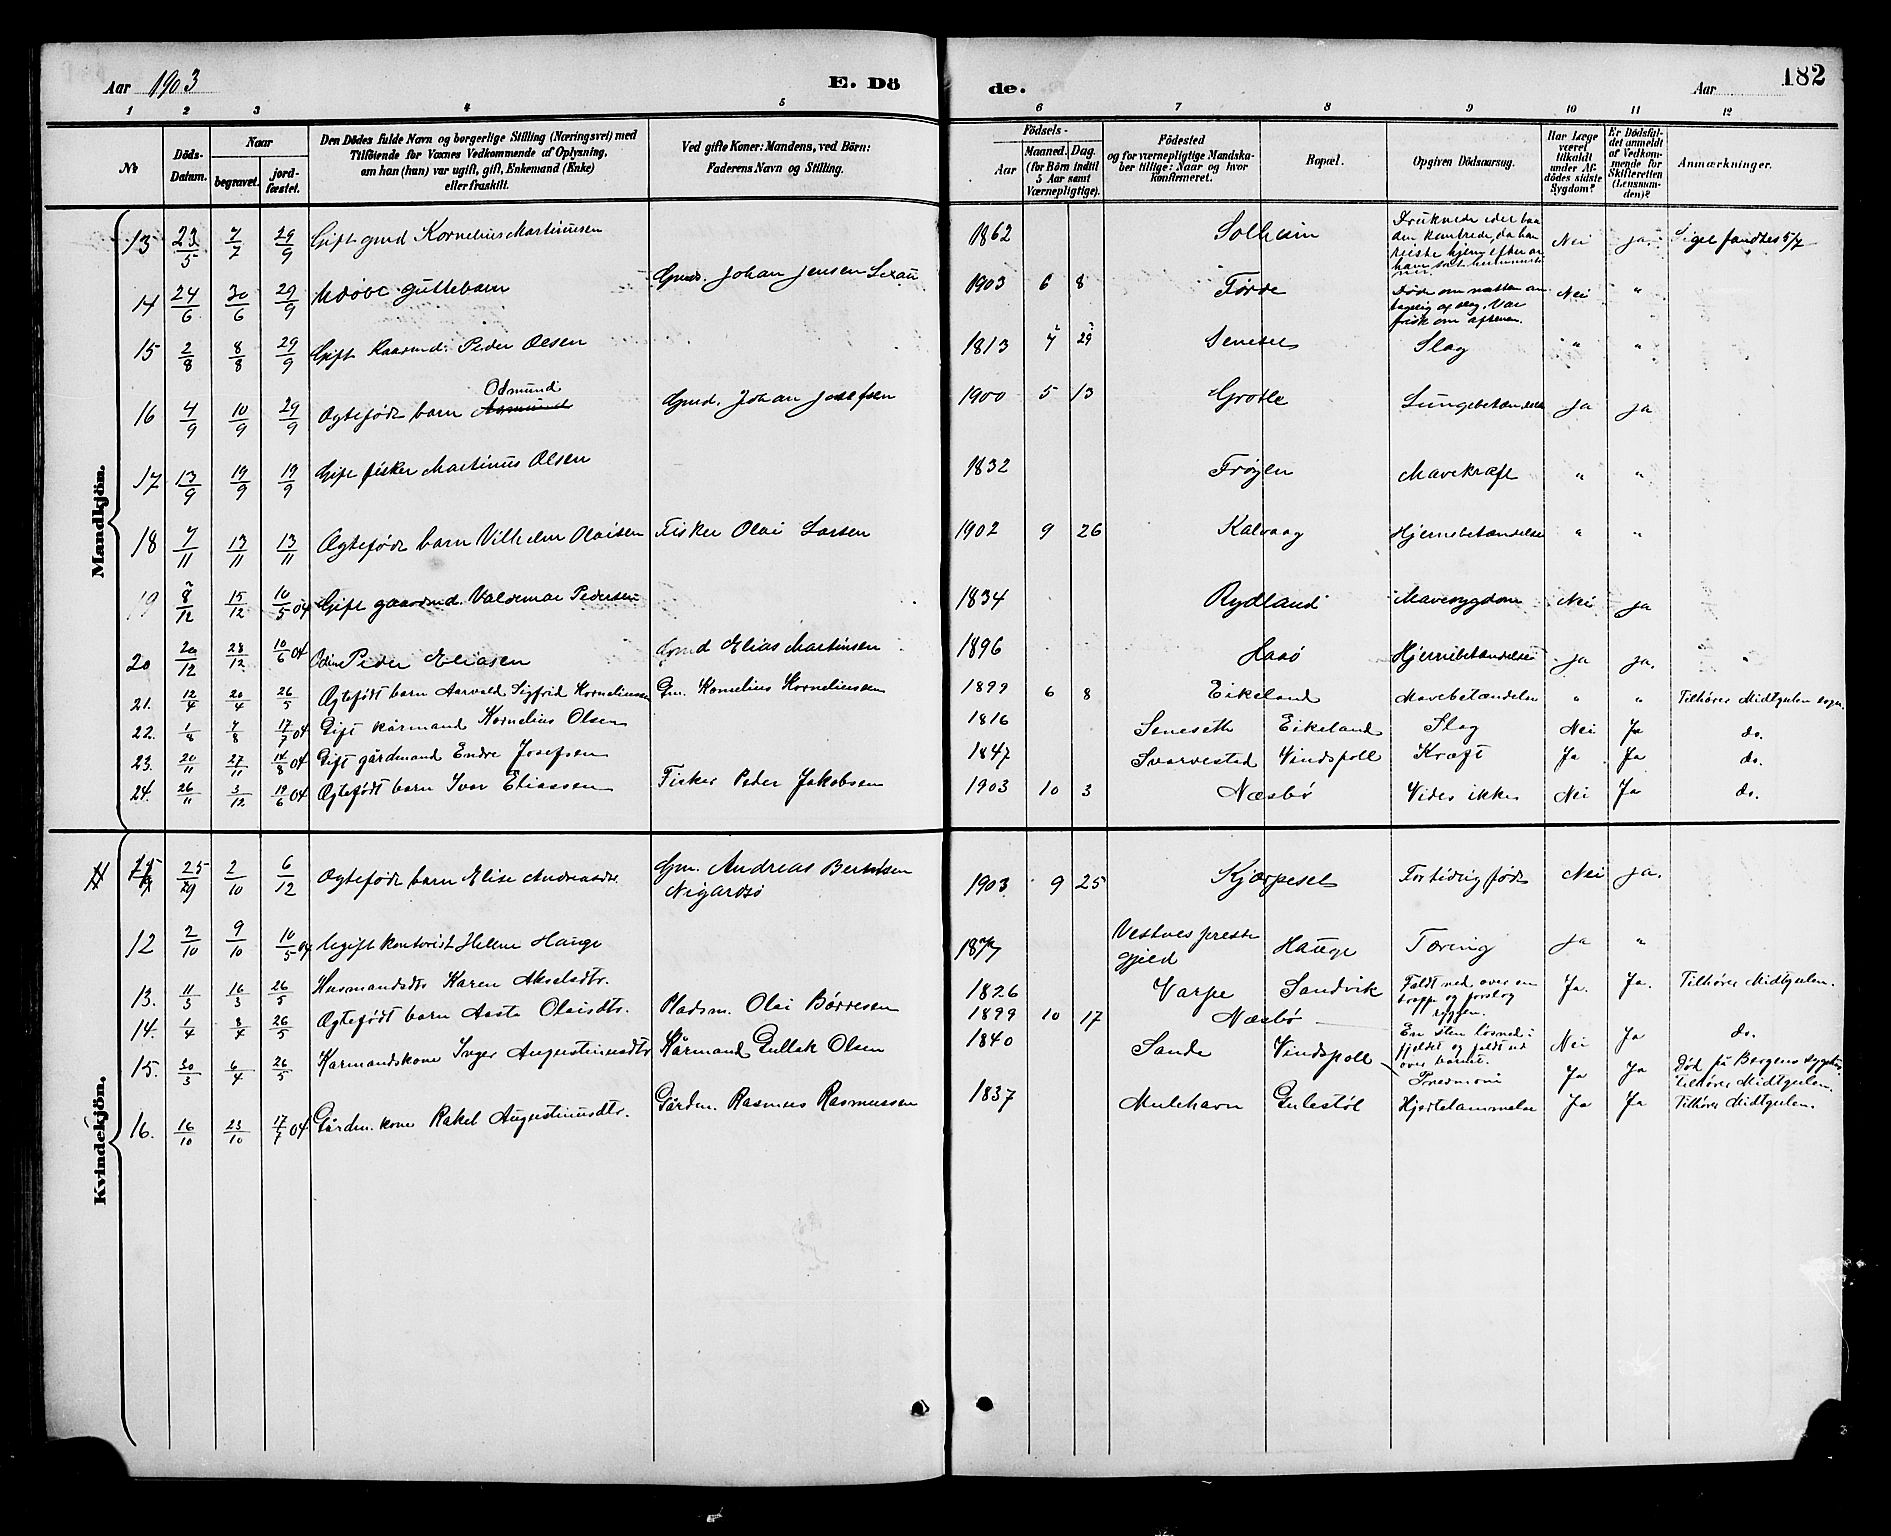 Aar 1903
E. Dö
de.
Aar
182
1 2 3 4 5 6 7 8 9 10 11 12
№
Döds-Datum.
Naar
begravet.
jordfæstet.
Den Dödes fulde Navn og borgerlige Stilling (Næringsvei) med
Tilföiende for Voxnes Vedkommende af Oplysning,
om han (hun) var ugift, gift, Enkemand (Enke)
eller fraskilt.
Ved gifte Koner: Mandens, ved Börn:
Faderens Navn og Stilling.
Födsels-
Aar
Maaned. Dag.
(for Börn indtil
5 Aar samt
Værnepligtige).
Födested
og for værnepligtige Mandskaber tillige: Naar og hvor
konfirmeret.
Bopæl.
Opgiven Dödsaarsag.
Har Læge
været
tilkaldt
under Afdödes sidste
Sygdom?
Er Dödsfaldet anmeldt
af Vedkommende for
Skifteretten
(Lensmanden)?
Anmærkninger.
Mandkjön.
13 23/5 7/7 29/9 Gift gmd Kornelius Martinusen 1862 Solheim Nei ja. Liget fandtes 5/7
14 24/6 30/6 29/9 Udöbt guttebarn Gmd. Johan Jensen 1903 6 8 Förde Döde om natten Var frisk om aftenen. Nei "
15 2/8 8/8 29/9 Gift Kaarmd. Peder Olsen 1813 7 29 Seneset Slag " "
16 4/9 10/9 29/9 Ægtefödt barn Odmund Gmd. Johan Josefsen 1900 5 13 Grotle Lungebetændelse ja ja
17 13/9 19/9 19/9 Gift fisker Martinus Olsen 1832 Fröyen Mavekræft " "
18 7/11 13/11 13/11 Ægtefödt barn Vilhelm Olaisen Fisker Olai Larsen 1902 9 26 Kalvaag Hjernebetændelse " "
19 8/12 15/12 10/5 04 Gift gaardmd. Valdemar Pedersen 1834 Rydland Mavesygdom Nei ja
20 20/12 28/12 10/6 04 Odin Peder Eliasen Gmd Elias Martinsen 1896 Haaö Hjernebetændelse ja ja.
21. 12/4 20/4 26/5 Ægtefödt barn Aarvald Sigfrid Korneliussen Gm. Kornelius Korneliussen 1899 6 8 Eikeland Mavebetændelse " " Tilhörer Midtgulen sogn.
22. 1/8 7/8 17/7 04 Gift kårmand Kornelius Olsen 1816 Seneseth Eikeland Slag Nei Ja do.
23. 20/11 27/11 14/8 04 Gift gårdmand Endre Josefsen 1847 Svarvested Vindspoll Kræft Ja Ja do.
24. 26/11 3/12 19/6 04 Ægtefödt barn Ivar Eliassen Fisker Peder Jakobsen 1903 10 3 Næsbö Vides ikke Nei Ja do.
Kvindekjön.
11 25/9 2/10 6/12 Ægtefödt barn Elise Andreasdtr. Gm. Andreas Berntsen
Nigardsö 1903 9 25 Kjærpeset Fortidlig födt Nei ja.
12 2/10 9/10 10/5 04 Ugift kontorist Helene Hauge Vestnes prestegjeld Hauge Tæring ja "
13. 11/3 16/3 26/5 Husmandsdtr Karen Akselsdtr. 1826 Varpe Sandvik Faldt ned over en
trappe og forslog
ryggen. Ja. Ja. Tilhörer Midtgulen.
14. 1/4 8/4 26/5 Ægtefödt barn Aasta Olaisdtr. Pladsm. Olai Börresen 1899 10 17 Næsbö En sten lösnede i
fjeldet og faldt ned
over barnet. Nei Ja do.
15. 30/3 6/4 26/5 Kårmandskone Inger Augustinusdtr Kårmand Gullak Olsen 1840 Sande Vindspoll Ja Ja Död på Bergens sygehus.
Tilhörer Midtgulen.
16. 16/10 23/10 17/7 04 Gårdm. kone Rakel Augustinusdtr. Gårdm. Rasmus Rasmussen 1837 Mulehavn Gulestöl Hjertelammelse Ja Ja Tilhörer Midtgulen.